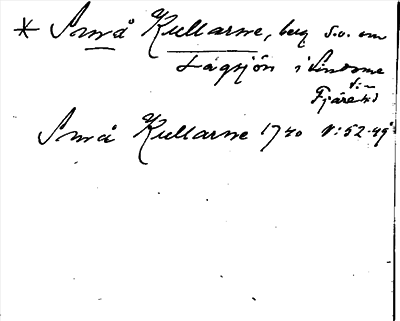 * Små Kullarne, berg S.o. om
Lågsjön i Lindome
s:n
Fjäre hd
Små Kullarne 1740 N:52-49